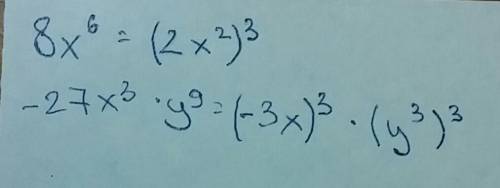 8x⁶ = (2x²)³
-27x³ · y⁹ = (-3x)³ · (y³)³